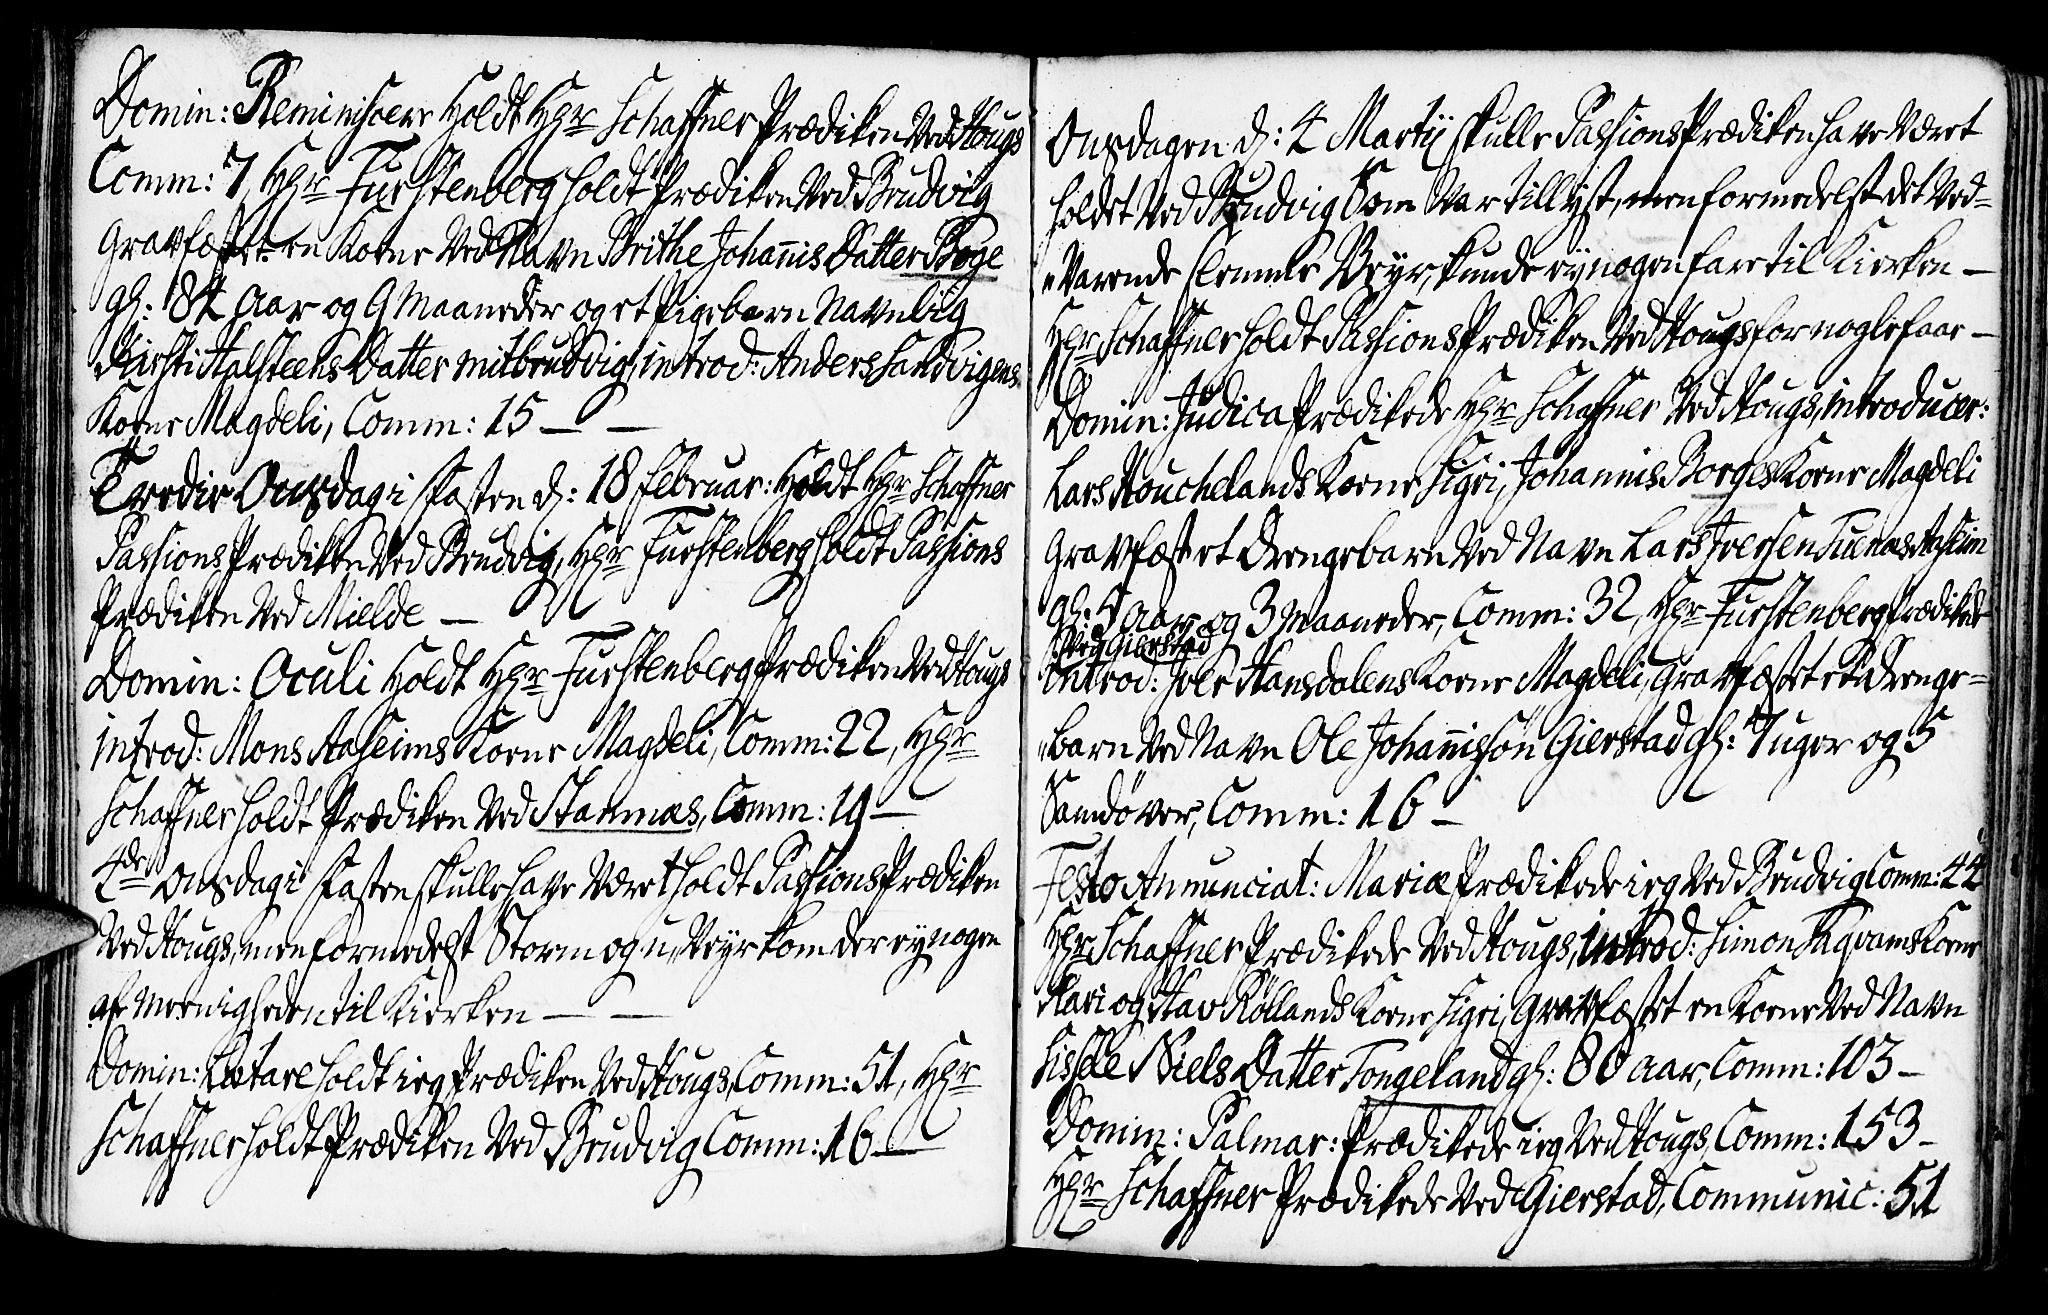 Domin: Reminiscere Holdt Hr Schaffner Prædiken Ved Hougs
Comm: 7, Hr Furstenberg holdt Prædiken Ved Brudvig
Gravfæstet en Kone Ved Navn Brithe Johannis Datter Boge
gl: 84 Aar og 9 Maaneder og et Pigebarn Navnlig
Kirsti Halsteens Datter mitbrudvig, introd: Anders Sandvigens
Kone Magdeli, Comm: 15 — —
Tredie Onsdag i Fasten d: 18 Februar: Holdt Hr Schaffner
Passions Prædiken Ved Brudvig, Hr Furstenberg holdt Passions
Prædiken Ved Mielde —
Domin: Oculi Holdt Hr Furstenberg Prædiken Ved Hougs
introd: Mons Aaseims Kone Magdeli, Comm: 22, Hr
Schaffner holdt Prædiken Ved Stamnæs, Comm: 19 —
4de Onsdag i Fasten skulle have Været holdt Passions Prædiken
Ved Hougs, men formedelst Storm og u-Veyr kom der ey nogen
af Meenigheden til Kierken — —
Domin: Lætare holdt ieg Prædiken Ved Hougs, Comm: 51, Hr
Schaffner holdt Prædiken Ved Brudvig Comm: 16 —
Onsdagen d: 4 Martij skulle Passions Prædiken have Været
holdet Ved Brudvig Som Var tillyst, men formedelst det Ved-
"Varende slemme Veyr, kunde ey nogen fare til Kierken —
Hr Schaffner holdt Passions Prædiken Ved Hougs for nogle faae —
Domin: Judica Prædikede Hr Schaffner Ved Hougs, introducer:
Lars Houchelands Kone Sigri, Johannis Borges Kone Magdeli
Gravfæstet Drengebarn Ved Navn Lars Iversen Tuenæs Aaseim
gl: 5 Aar og 3 Maaneder, Comm: 32, Hr Furstenberg Prædikede
Ved Gierstad
introd: Iver Hansdalens Kone Magdeli, Gravfæstet et Drenge-
"barn Ved Navn Ole Johannisøn Gierstad gl: 7 uger og 5
Samdøver, Comm: 16 —
Festo Annunciat: Mariæ Prædikede ieg Ved Brudvig Comm: 44
Hr Schaffner Prædikede Ved Hougs, introd: Simon Tqvams Kone
Kari og Hav Røllands Kone Sigri, Gravfæstet en Kone Ved Navn
Sisselle Niels Datter Tongeland gl: 80 Aar, Comm: 103 —
Domin: Palmar: Prædikede ieg Ved Hougs, Comm: 153 —
Hr Schaffner Prædikede Ved Gierstad, Communic: 51